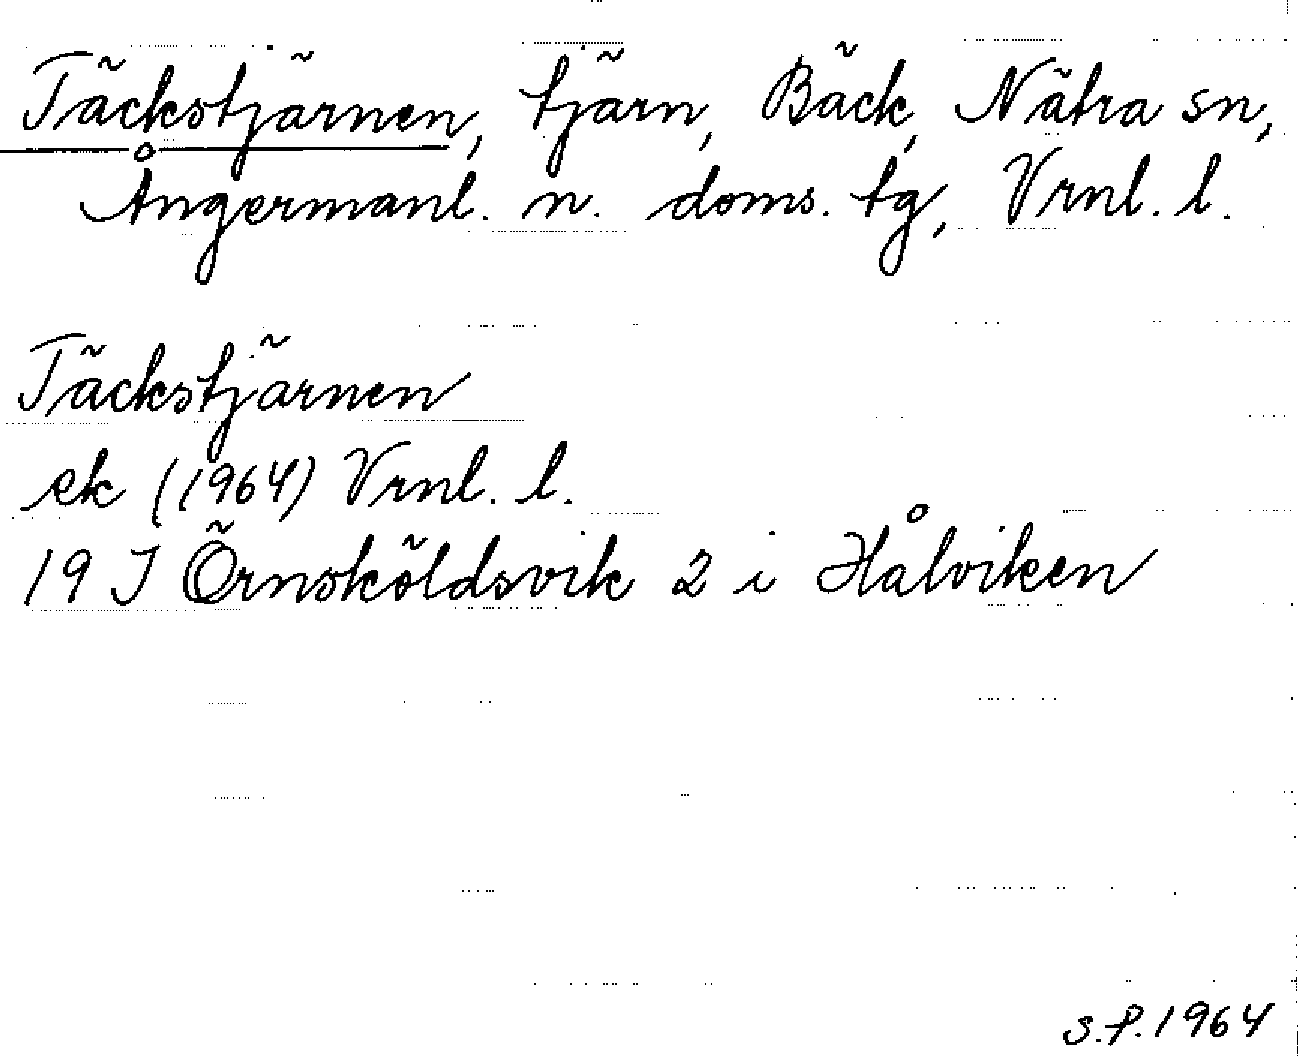 Täckstjärnen, tjärn, Bäck, Nätra sn,
Ångermanl. n. doms. tg, Vrnl. l.
Täckstjärnen
ek (1964) Vrnl. l.
19 J Örnsköldsvik 2 i Hålviken
s.f. 1964